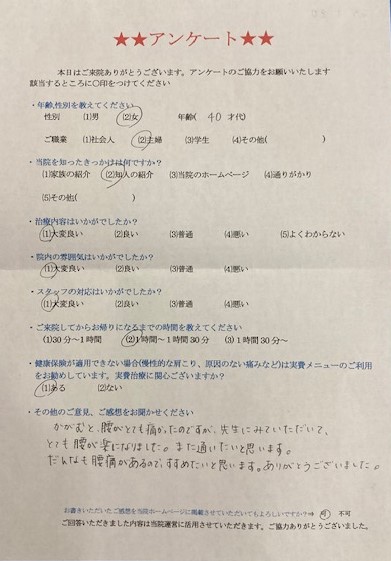 ★★アンケート★★
本日はご来院ありがとうございます。アンケートのご協力をお願いいたします
該当するところに○印をつけてください
・年齢,性別を教えてください
性別 (1)男 (2)女 年齢( 40 才代)
ご職業 (1)社会人 (2)主婦 (3)学生 (4)その他( )
・当院を知ったきっかけは何ですか?
(1)家族の紹介 (2)知人の紹介 (3)当院のホームページ (4)通りがかり
(5)その他( )
・治療内容はいかがでしたか?
(1)大変良い (2)良い (3)普通 (4)悪い (5)よくわからない
・院内の雰囲気はいかがでしたか?
(1)大変良い (2)良い (3)普通 (4)悪い
・スタッフの対応はいかがでしたか?
(1)大変良い (2)良い (3)普通 (4)悪い
・ご来院してからお帰りになるまでの時間を教えてください
(1)30分～1時間 (2)1時間～1時間30分 (3)1時間30分～
・健康保険が適用できない場合(慢性的な肩こり、原因のない痛みなど)は実費メニューのご利用
をお勧めしています。実費治療に関心ございますか?
(1)ある (2)ない
・その他のご意見、ご感想をお聞かせください
かがむと、腰がとても痛かったのですが、先生にみていただいて、
とても腰が楽になりました。また通いたいと思います。
だんなも腰痛があるので、すすめたいと思います。ありがとうございました。
お書きいただいたご感想を当院ホームページに掲載させていただいてもよろしいですか?⇒ 可 不可
ご回答いただきました内容は当院運営に活用させていただきます。ご協力ありがとうございました。